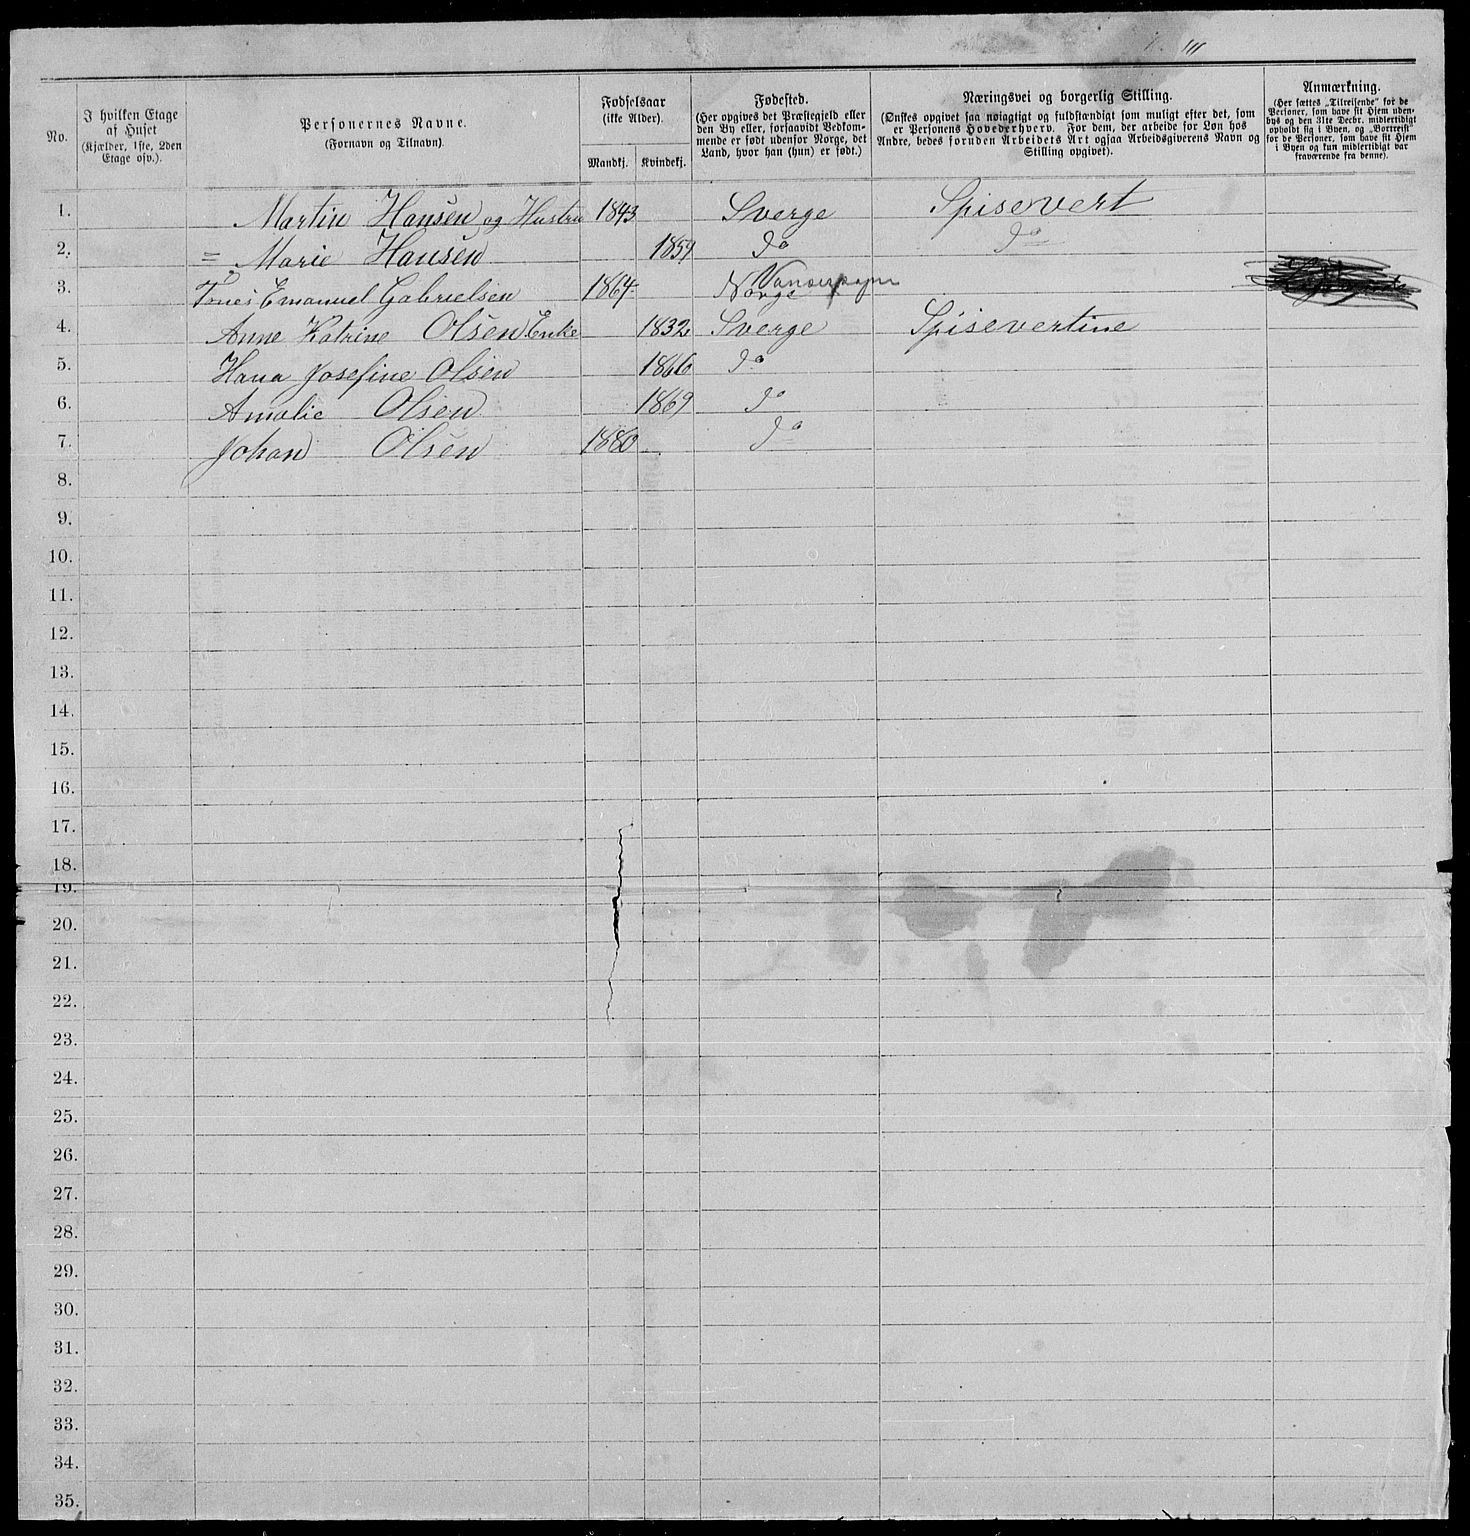 No.
I hvilken Etage af Huset
(Kjælder, 1ste, 2den Etage osv.).
Personernes Navne.
(Fornavn og Tilnavn).
Fødselsaar
(ikke Alder).
Mandkj. Kvindekj.
Fødested.
(Her opgives det Præstegjeld eller
den By eller, forsaavidt Vedkom-
mende er født udenfor Norge, det
Land, hvor han (hun) er født.)
Næringsvei og borgerlig Stilling.
(Ønskes opgivet saa nøiagtigt og fuldstændigt som muligt efter det, som
er Personens Hovederhverv. For dem, der arbeide for Løn hos
Andre, bedes foruden Arbeidets Art ogsaa Arbeidsgiverens Navn og
Stilling opgivet).
Anmærkning.
(Her sættes „Tilreisende" for de
Personer, som have sit Hjem uden-
bys og den 31te Decbr. midlertidigt
opholdt sig i Byen, og „Bortreist"
for de Personer, som have sit Hjem
i Byen og kun midlertidigt var
fraværende fra denne).
1. Martin Hansen og Hustru 1843 Sverge Spisevert
2. = Marie Hansen 1859 do do
3. Emanuel Gabrielsen 1864 Norge
4. Anne Katrine Olsen Enke 1832 Sverge Spisevertine
5. Hana Josefine Olsen 1866 do
6. Amalie Olsen 1869 do
7. Johan Olsen 1880 do
8.
9.
10.
11.
12.
13.
14.
15.
16.
17.
18.
19.
20.
21.
22.
23.
24.
25.
26.
27.
28.
29.
30.
31.
32.
33.
34.
35.